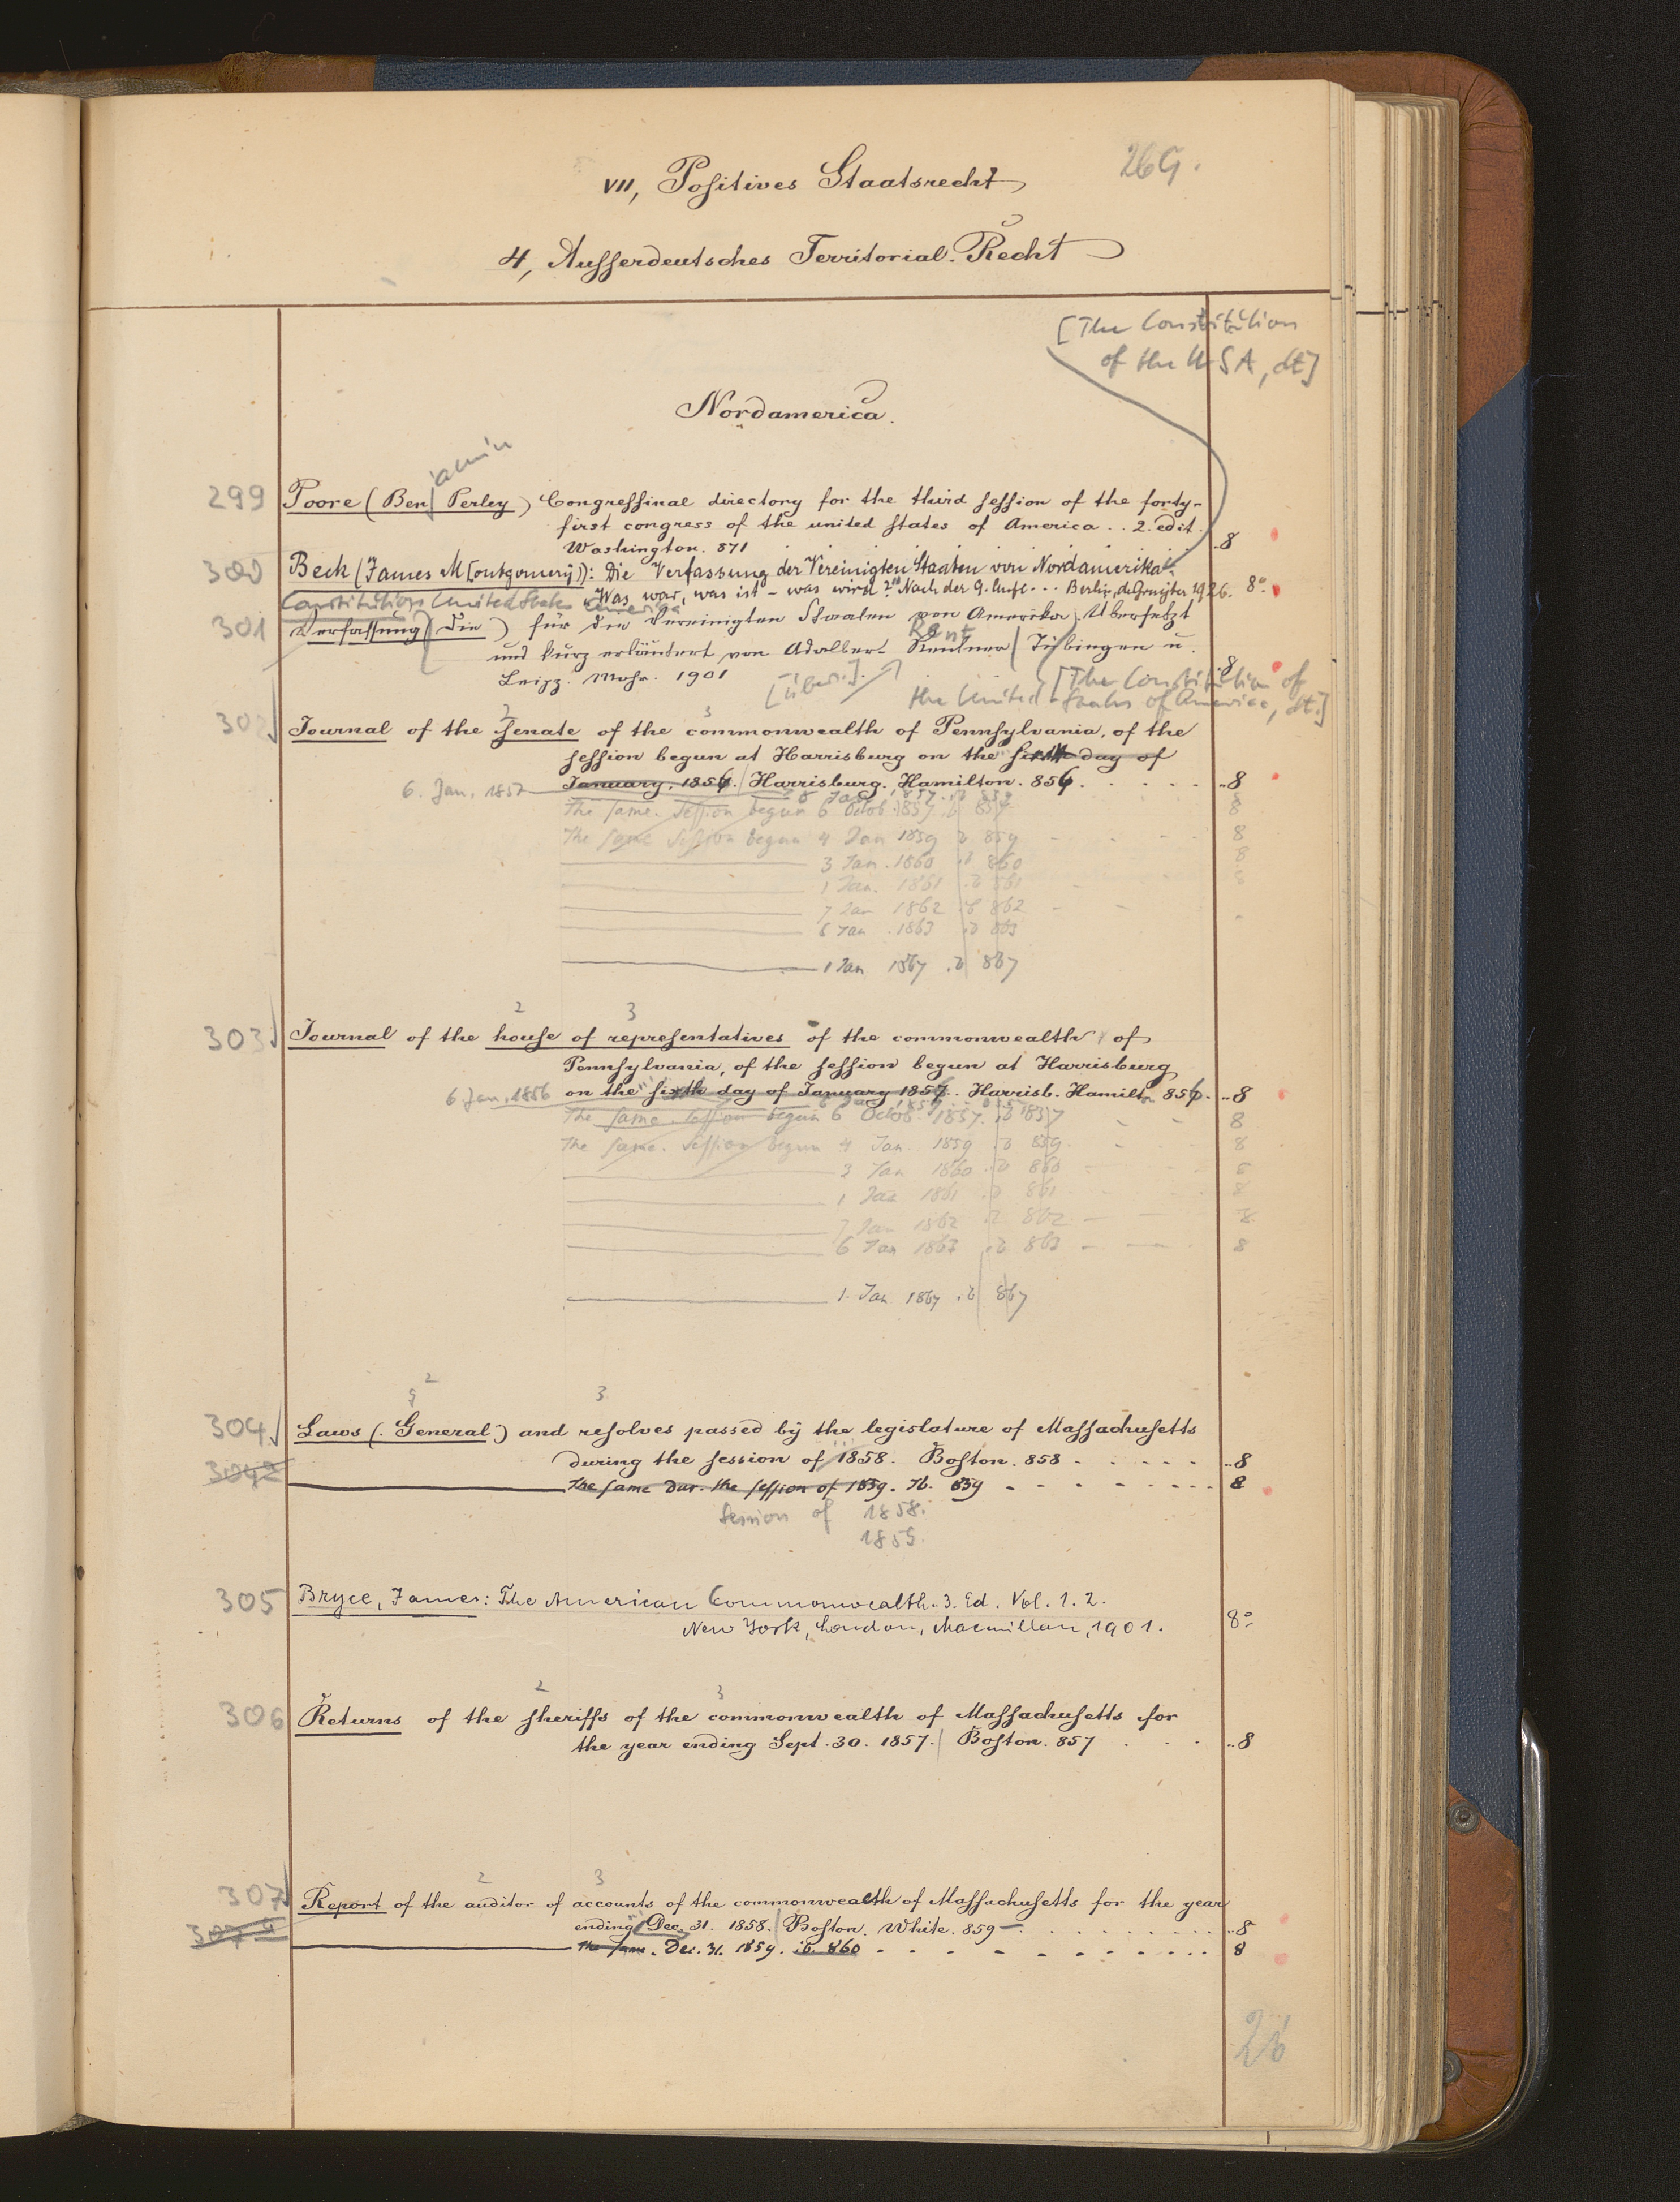 VII, Positives Staatsrecht
269.
4, Ausserdeutsches Territorial-Recht
[The Constitution
of the USA, dt]
Nordamerica.
jamin
299 Poore (Ben Perley) Congressinal directory for the third session of the forty-
first congress of the united states of America . . 2. edit.
Washington. 871 . . . . . . . 8
300 Beck (James M[ontgomery]): Die Verfassung der Vereinigten Staaten von Nordamerika
"Was war, was ist - was wird?" Nach der 9. Aufl. . . Berlin, de Gruyter 1926. 8°
Constitution United States America
301 Verfassung (Die) für die Vereinigten Staaten von Amerika. Übersetzt
und kurz erläutert von Adalbert Rentner Tübingen u.
Leipz. Mohr. 1901 8
[Übers.]
[The Constitution of
the United States of America, dt.]
2 3
302 Journal of the senate of the commonwealth of Pennsylvania, of the
session begun at Harrisburg on the sixth day of
6. Jan. 1857 January. 1856. Harrisburg. Hamilton. 856. . . . . 8
The same. Session begun 6 Octob. 1857 ib 857 8
The same Session begun 4 Jan 1859 ib 859 - - - 8
3 Jan. 1860 ib 860 8
1 Jan. 1861 ib 861 8
7 Jan 1862 ib 862 - -
6 Jan. 1863 ib 863
1 Jan 1867 ib 867
2 3
303 Journal of the house of representatives of the commonwealth of
Pennsylvania, of the session begun at Harrisburg
6 Jan. 1856 on the sixth day of January 1856. Harrisb. Hamilton 856. 8
The same. Session begun 6 Octob. 1857. ib 1857 - - 8
The same. Session begun 4 Jan. 1859 ib 859. - - 8
3 Jan 1860 ib 860 - - 8
1 Jan 1861 ib 861 8
7 Jan 1862 ib 862 - - 8
6 Jan 1863 ib 863 - - 8
1. Jan 1867 ib 867
2 3
304 Laws (General) and resolves passed by the legislature of Massachusetts
during the session of 1858. Boston. 858 . . . . . 8
304a The same dur. the session of 1859. Ib. 859 - - - - - - 8
Session of 1858.
1859.
305 Bryce, James: The American Commonwealth. 3. Ed. Vol. 1. 2.
New York, London, Macmillan, 1901. 8°
2 3
306 Returns of the sheriffs of the commonwealth of Massachusetts for
the year ending Sept. 30. 1857. Boston. 857 . . . 8
2 3
307 Report of the auditor of accounts of the commonwealth of Massachusetts for the year
ending Dec. 31. 1858. Boston. White. 859 - . . . . . 8
307a The same. Dec. 31. 1859. ib. 860 - - - - - - 8
26